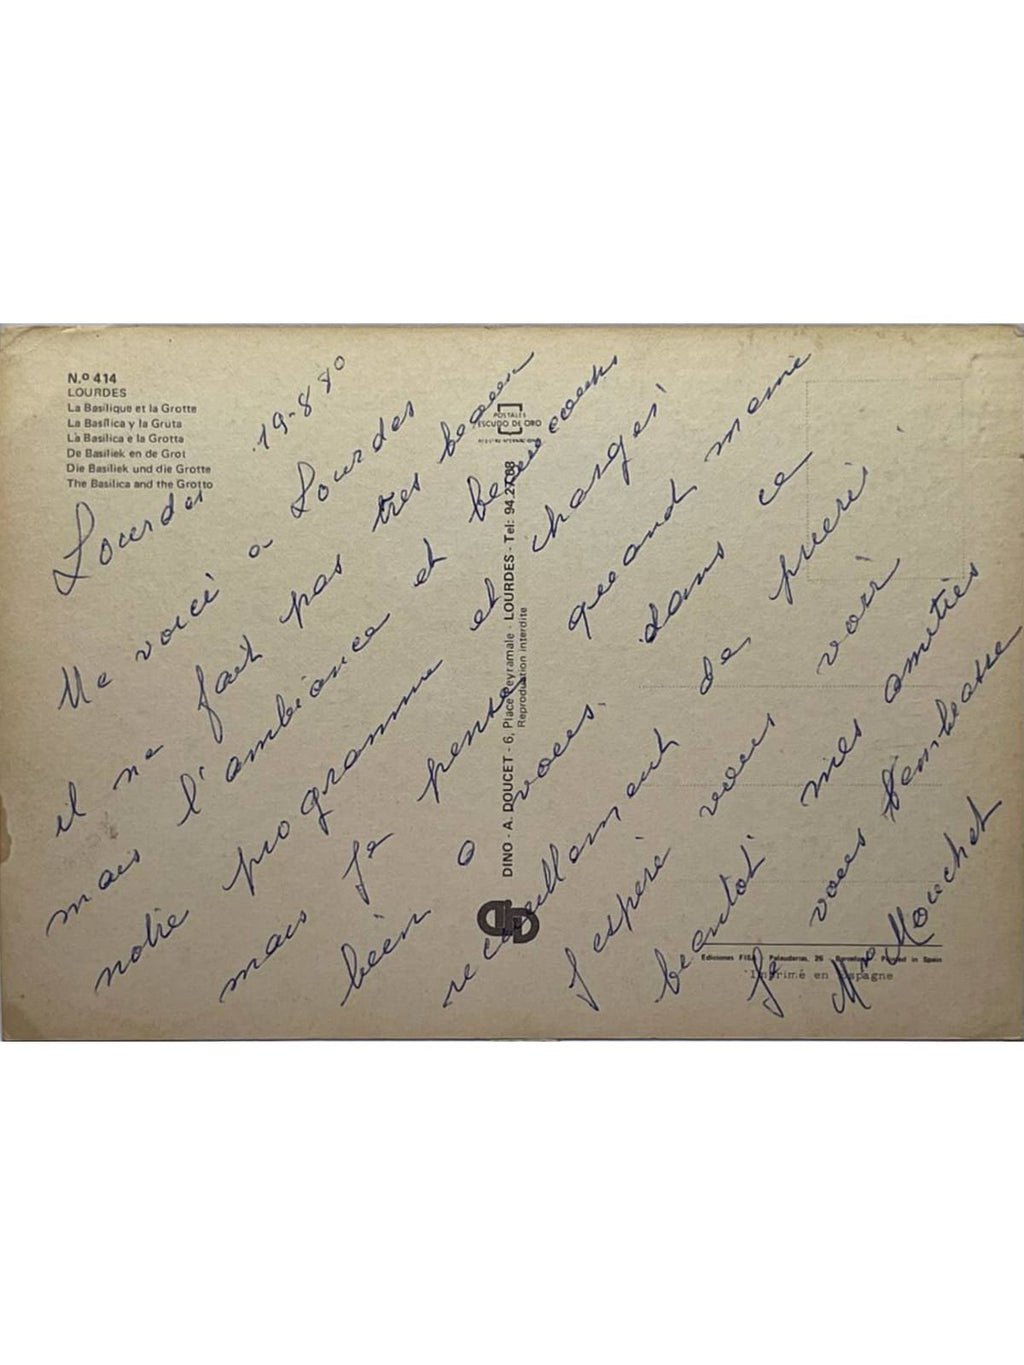 N.º 414
LOURDES
La Basilique et la Grotte
La Basílica y la Gruta
La Basilica e la Grotta
De Basiliek en de Grot
Die Basiliek und die Grotte
The Basilica and the Grotto
POSTALES
ESCUDO DE ORO
DINO - A. DOUCET - 6, Place Peyramale - LOURDES - Tel: 94.27.08
Reproduction interdite
Lourdes 19-8 80
Me voici a Lourdes
il ne fait pas tres beau
mais l'ambiance et beaucoup
notre programme et changer
mais Je pense quand meme
bein a vous. dans ce
recueillement de prieri
J espere vous voir
beantot mes amities
Je vous embrasse
Mme Mouchet
Ediciones FISA Palaudarias, 26 Barcelona Printed in Spain
Imprimé en Espagne